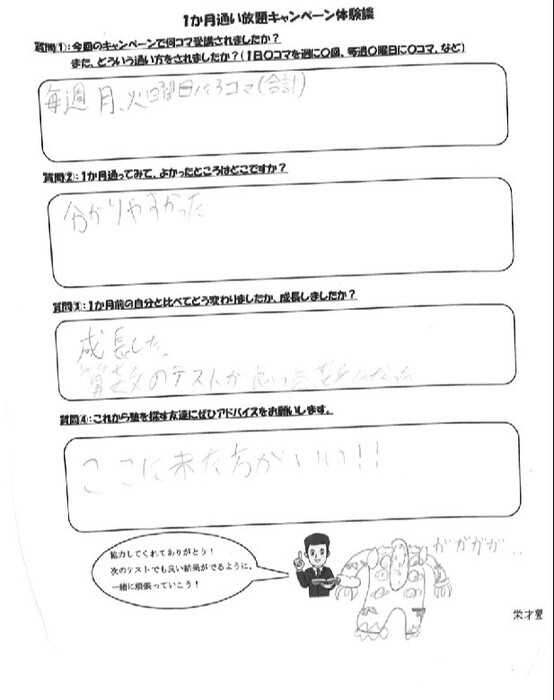 1か月通い放題キャンペーン体験談
質問①:今回のキャンペーンで何コマ受講されましたか?
また、どういう通い方をされましたか?(1日〇コマを週に〇回、毎週〇曜日に〇コマ、など)
毎週 月、火曜日に3コマ(合計)
質問②:1か月通ってみて、よかったところはどこですか?
分かりやすかった
質問③:1か月前の自分と比べてどう変わりましたか、成長しましたか?
成長した。
算数のテストが良い点数だった
質問④:これから塾を探す友達にぜひアドバイスをお願いします。
ここに来た方がいい!!
協力してくれてありがとう!
次のテストでも良い結果がでるように、
一緒に頑張っていこう!
ががががが..
栄才塾